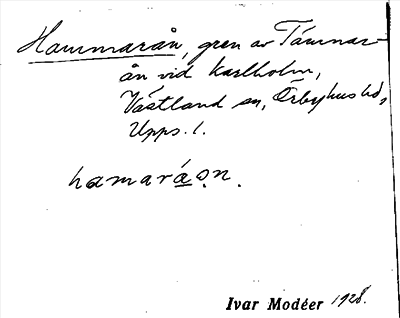 Hammarån, gren av Tämnar-
ån vid Karlholm,
Västland sn, Örbyhus hd,
Upps. l.
hamaráọṇ.
Ivar Modéer 1928.